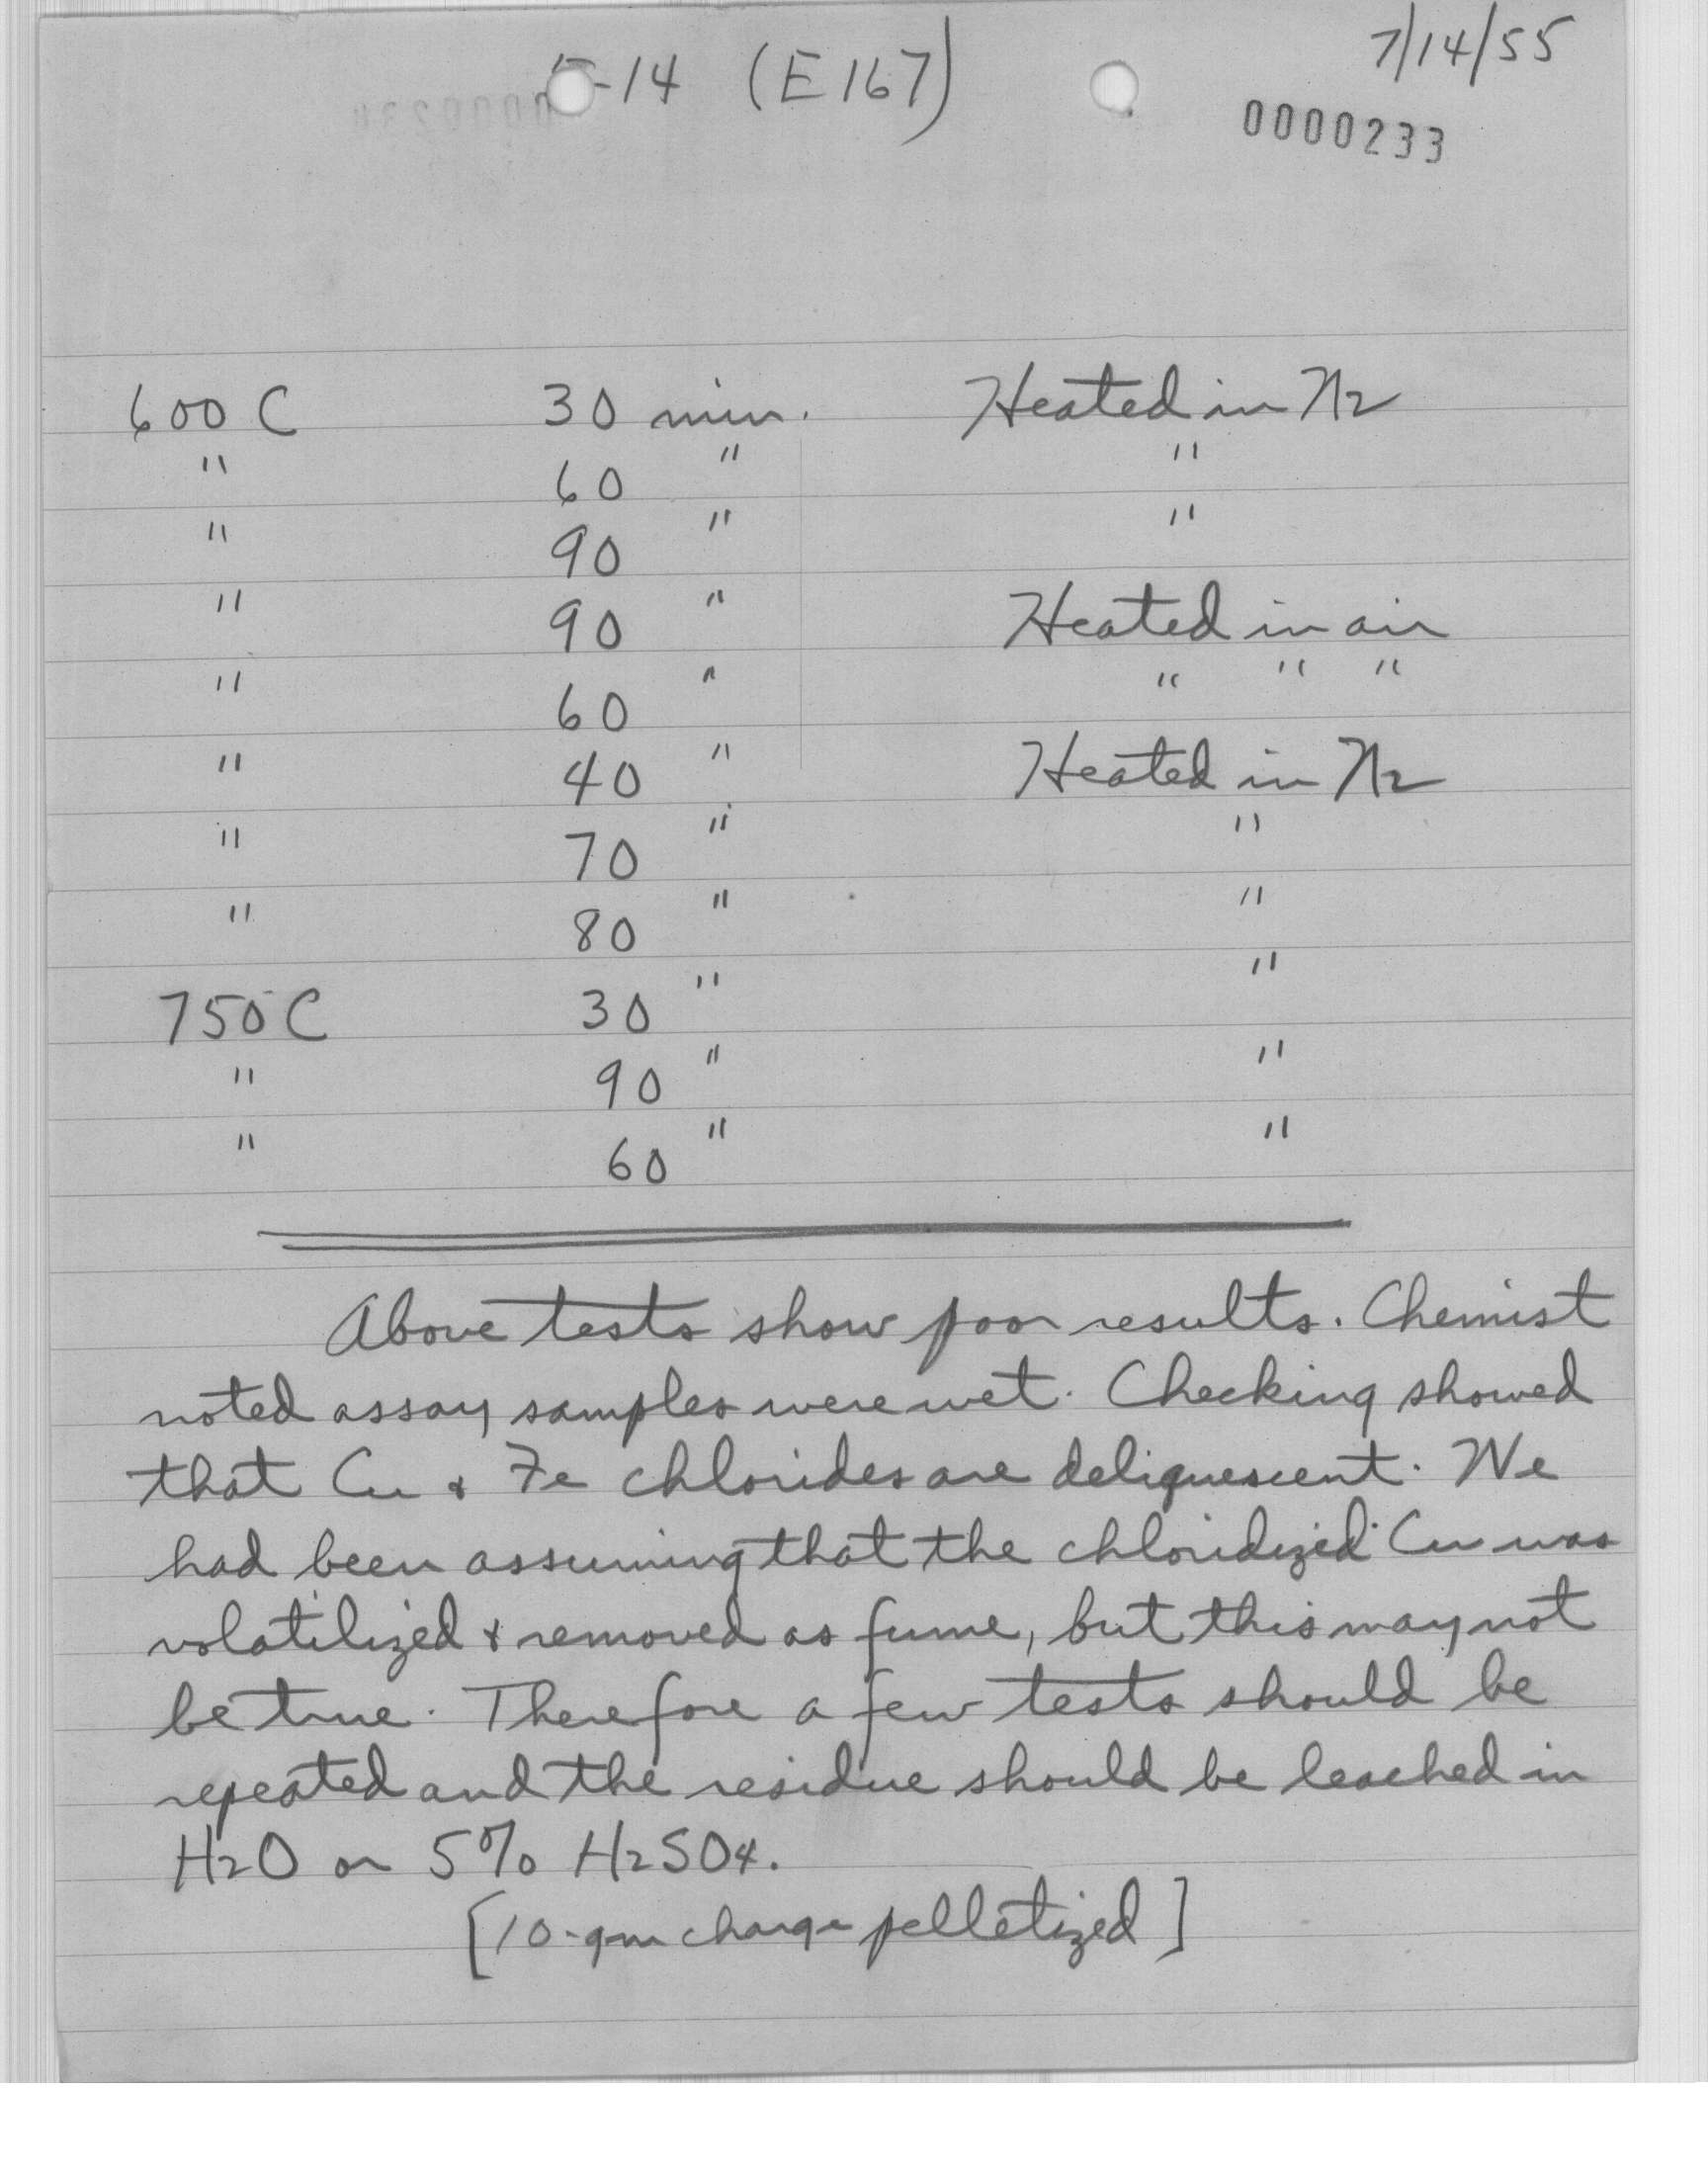 -14 (E167)
7/14/55
0000233
600 C 30 min. Heated in N2
" 60 " "
" 90 " "
" 90 " Heated in air
" 60 " " " "
" 40 " Heated in N2
" 70 " "
" 80 " "
750 C 30 " "
" 90 " "
" 60 " "
Above tests show poor results. Chemist
noted assay samples were wet. Checking showed
that Cu & Fe chlorides are deliquescent. We
had been assuming that the chloridized Cu was
volatilized & removed as fume, but this may not
be true. Therefore a few tests should be
repeated and the residue should be leached in
H2O or 5% H2SO4.
[10-gm charge pelletized]